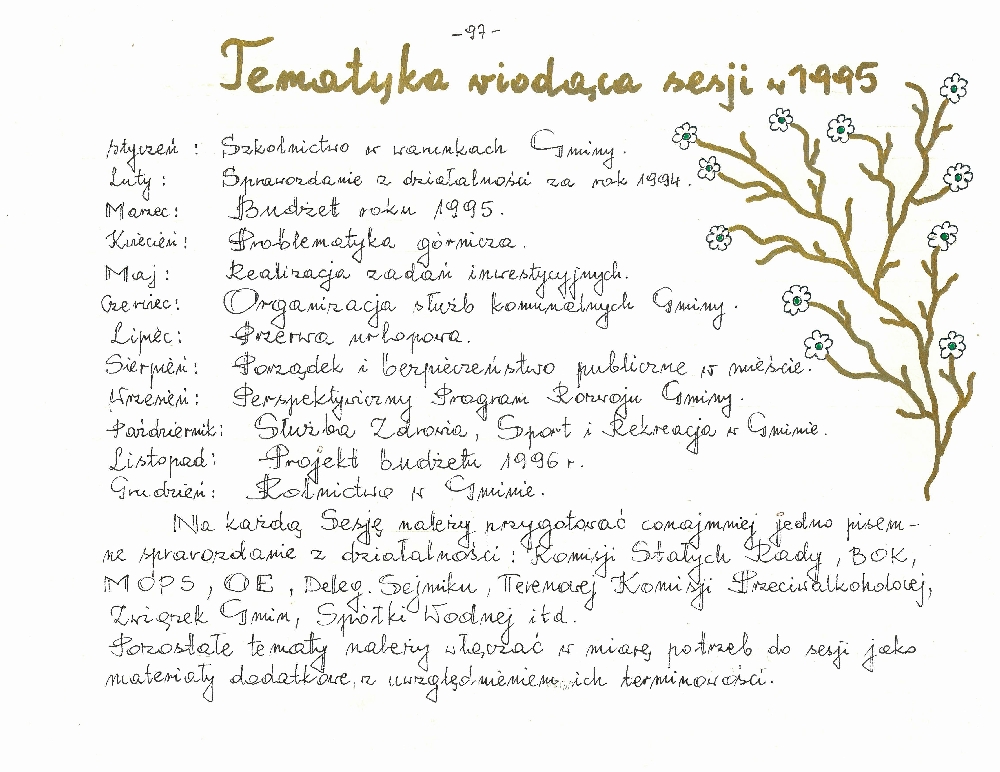 -97-
Tematyka wiodąca sesji w 1995
styczeń : Szkolnictwo w warunkach Gminy.
Luty : Sprawozdanie z działalności za rok 1994.
Marzec : Budżet roku 1995.
Kwiecień : Problematyka górnicza.
Maj : Realizacja zadań inwestycyjnych.
Czerwiec : Organizacja służb komunalnych Gminy.
Lipiec : Przerwa urlopowa.
Sierpień : Porządek i bezpieczeństwo publiczne w mieście.
Wrzesień : Perspektywiczny Program Rozwoju Gminy.
Październik : Służba Zdrowia, Sport i Rekreacja w Gminie.
Listopad : Projekt budżetu 1996 r.
Grudzień : Rolnictwo w Gminie.
Na każdą Sesję należy przygotować conajmniej jedno pisem-
ne sprawozdanie z działalności : Komisji Stałych Rady, BOK,
MOPS, OE, Deleg. Sejmiku, Terenowej Komisji Przeciwalkoholowej,
Związek Gmin, Spółki Wodnej itd.
Pozostałe tematy należy włączać w miarę potrzeb do sesji jako
materiały dodatkowe, z uwzględnieniem ich terminowości.